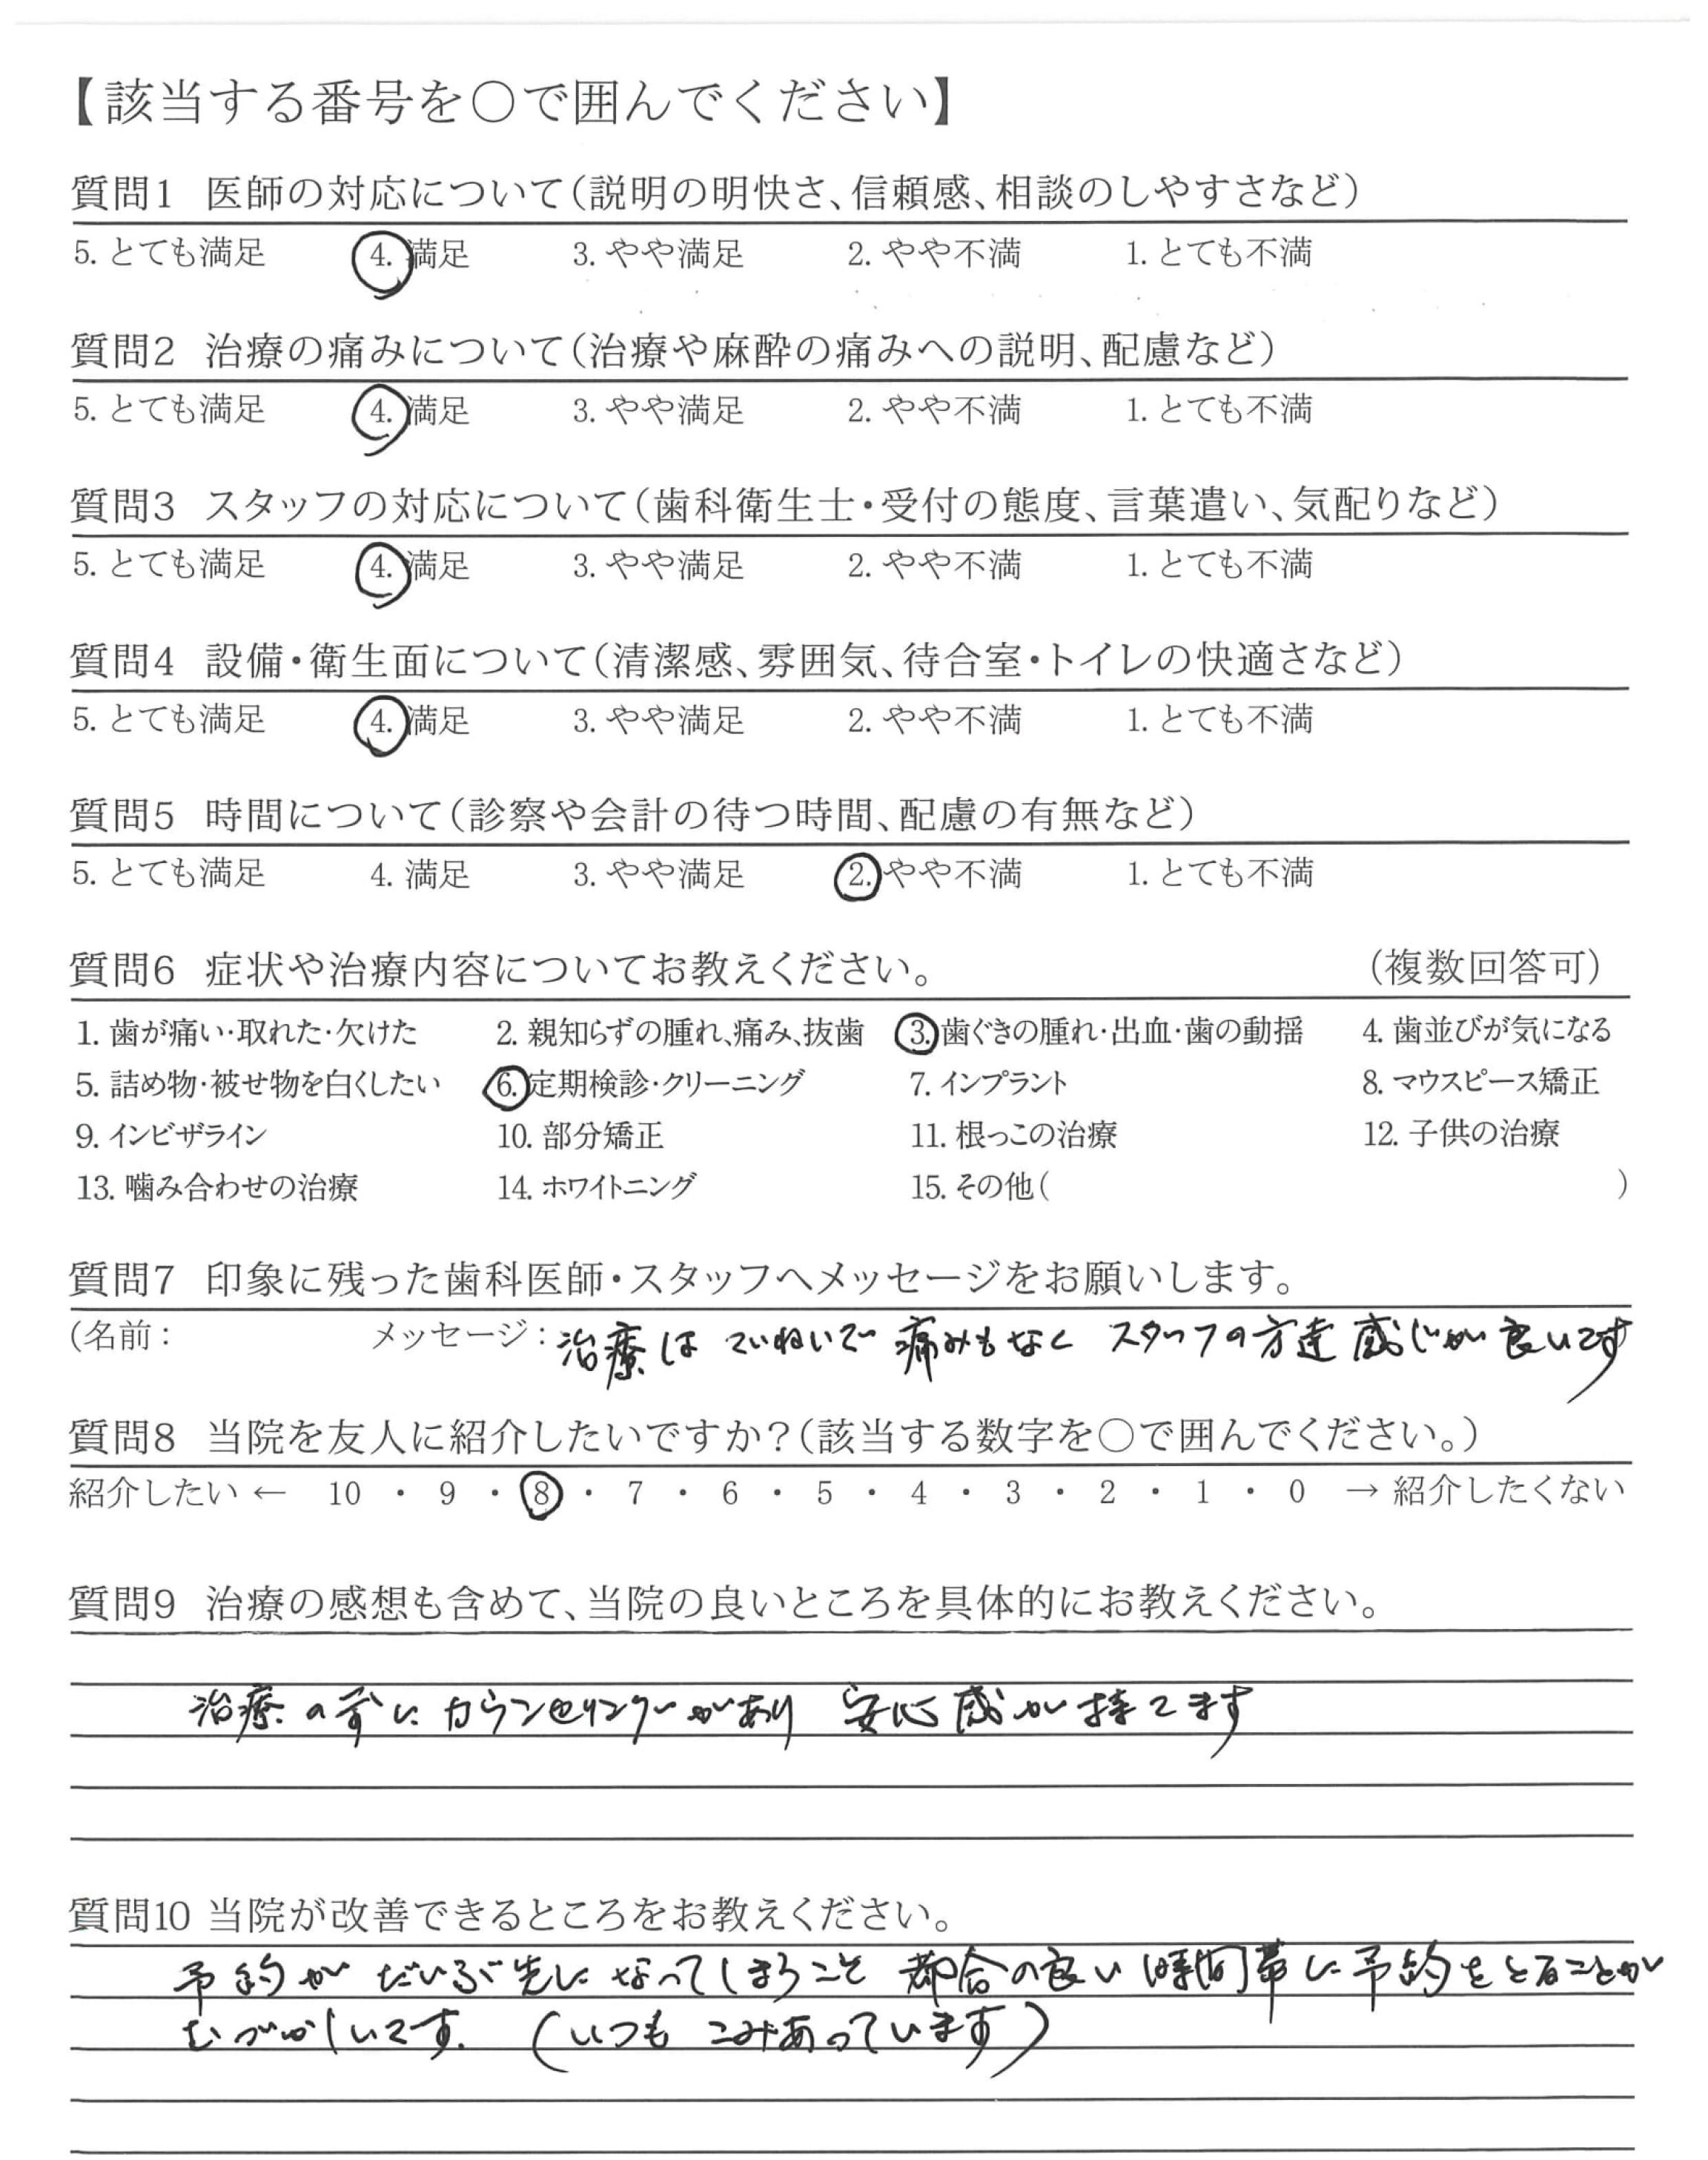 【該当する番号を〇で囲んでください】
質問1 医師の対応について(説明の明快さ、信頼感、相談のしやすさなど)
5. とても満足 4. 満足 3. やや満足 2. やや不満 1. とても不満
質問2 治療の痛みについて(治療や麻酔の痛みへの説明、配慮など)
5. とても満足 4. 満足 3. やや満足 2. やや不満 1. とても不満
質問3 スタッフの対応について(歯科衛生士・受付の態度、言葉遣い、気配りなど)
5. とても満足 4. 満足 3. やや満足 2. やや不満 1. とても不満
質問4 設備・衛生面について(清潔感、雰囲気、待合室・トイレの快適さなど)
5. とても満足 4. 満足 3. やや満足 2. やや不満 1. とても不満
質問5 時間について(診察や会計の待つ時間、配慮の有無など)
5. とても満足 4. 満足 3. やや満足 2. やや不満 1. とても不満
質問6 症状や治療内容についてお教えください。 (複数回答可)
1. 歯が痛い・取れた・欠けた 2. 親知らずの腫れ、痛み、抜歯 3. 歯ぐきの腫れ・出血・歯の動揺 4. 歯並びが気になる
5. 詰め物・被せ物を白くしたい 6. 定期検診・クリーニング 7. インプラント 8. マウスピース矯正
9. インビザライン 10. 部分矯正 11. 根っこの治療 12. 子供の治療
13. 噛み合わせの治療 14. ホワイトニング 15. その他( )
質問7 印象に残った歯科医師・スタッフへメッセージをお願いします。
(名前: メッセージ: 治療は ていねいで 痛みもなく スタッフの方達 感じが 良いです
質問8 当院を友人に紹介したいですか?(該当する数字を〇で囲んでください。)
紹介したい ← 10 ・ 9 ・ 8 ・ 7 ・ 6 ・ 5 ・ 4 ・ 3 ・ 2 ・ 1 ・ 0 → 紹介したくない
質問9 治療の感想も含めて、当院の良いところを具体的にお教えください。
治療の前に カウンセリングがあり 安心感が持てます
質問10 当院が改善できるところをお教えください。
予約が だいぶ先に なってしまうこと 都合の良い時間帯に予約をとることが
むづかしいです. (いつも こみあっています)